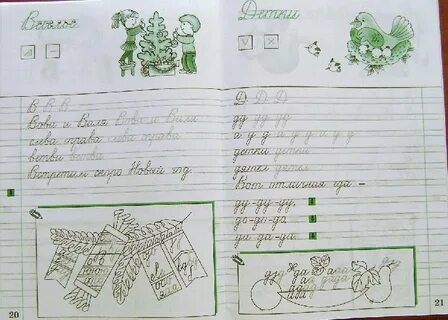 Веселье
В В В
Вова и Валя Вова и Валя
слева справа слева справа
ветви ветви
Встретим скоро Новый год.
20
Детки
Д Д Д
дд дд дд
детки детки
дятел дятел
Вот отличная еда –
ду-ду-ду.
до-до-до
да-да-да.
21